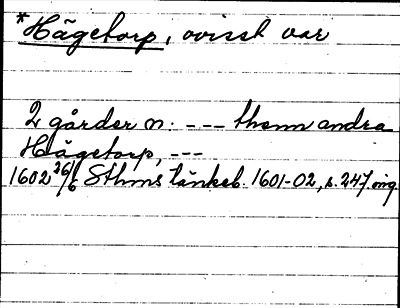 *Hägetorp, ovisst var
2 gårder n. --- thenn andra
Hägetorp, ---
1602 26/6 Sthms tänkeb. 1601-02, s. 247 orig.